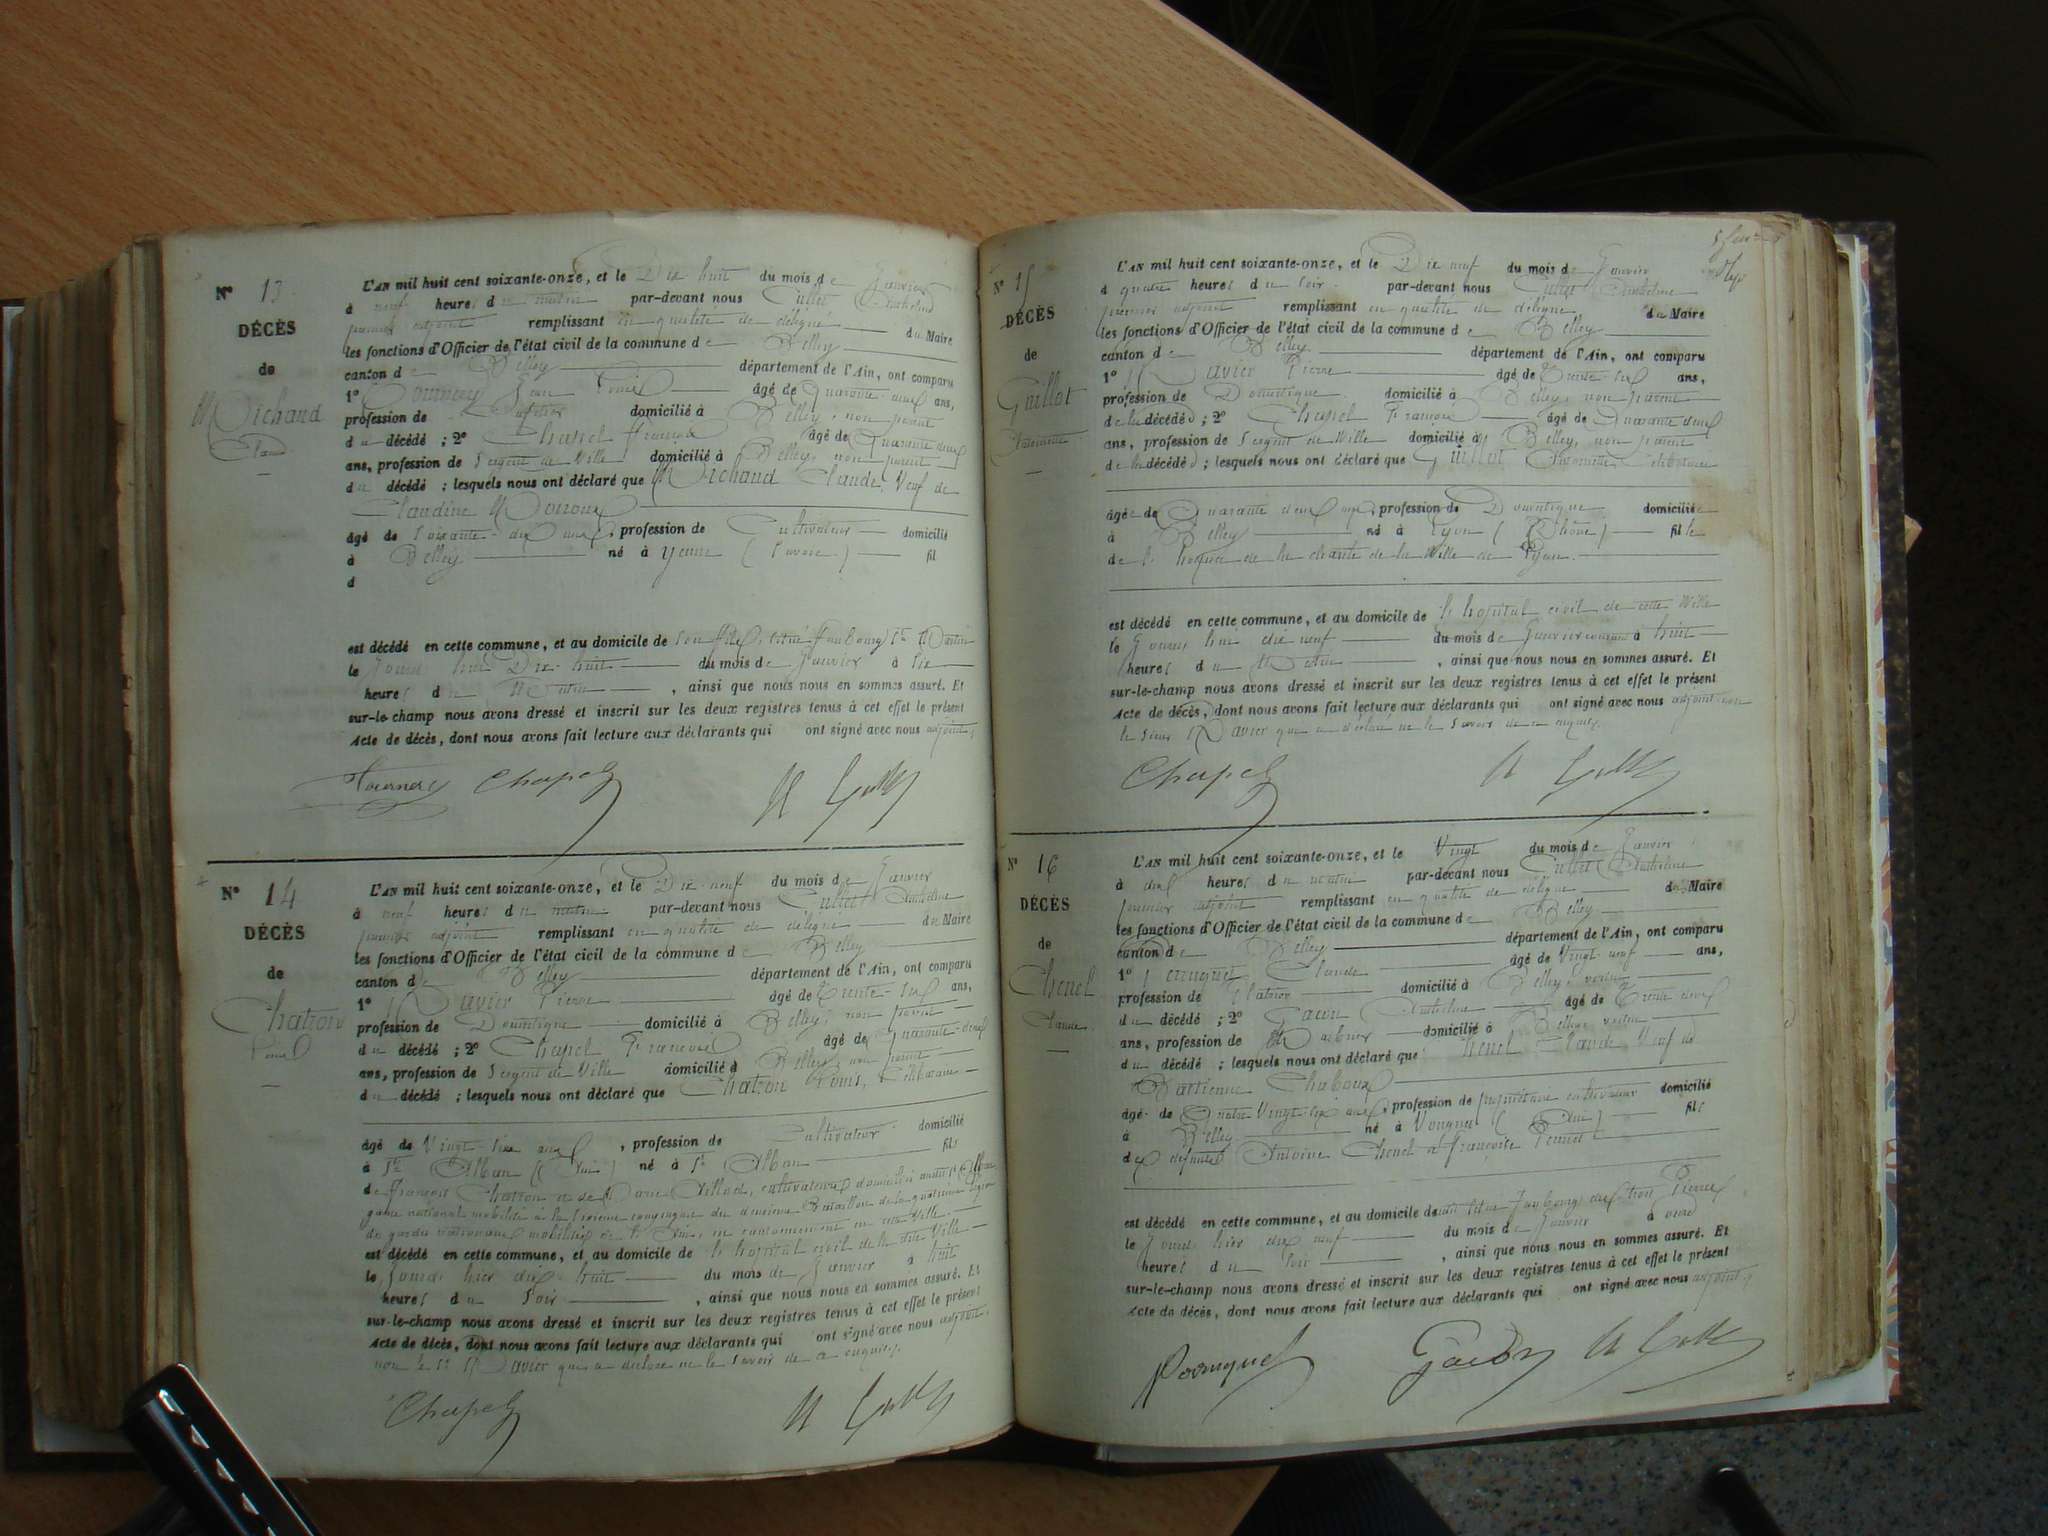 N° 13
DÉCÈS
de
Michaud
Claude
L'AN mil huit cent soixante-onze, et le Dix huit du mois de Janvier
à neuf heures du matin par-devant nous Cullet Anthelme
premier adjoint remplissant en qualité de délégué du Maire
les fonctions d'Officier de l'état civil de la commune de Belley
canton de Belley département de l'Ain, ont comparu
1° Jean Louis âgé de Quarante deux ans,
profession de domicilié à Belley, non parent
du décédé ; 2° Chapel François âgé de Quarante deux
ans, profession de Sergent de Ville domicilié à Belley, non parent
du décédé ; lesquels nous ont déclaré que Michaud Claude, Veuf de
Claudine
âgé de Soixante-dix ans, profession de Cultivateur domicilié
à Belley né à Yenne (Savoie) fil
d
est décédé en cette commune, et au domicile de son fils, situé faubourg St Martin
le Jourd'hui Dix-huit du mois de Janvier à Six
heures du Matin, ainsi que nous nous en sommes assuré. Et
sur-le-champ nous avons dressé et inscrit sur les deux registres tenus à cet effet le présent
Acte de décès, dont nous avons fait lecture aux déclarants qui ont signé avec nous adjoint.
Chapel
N° 14
DÉCÈS
de
Chatron
Louis
L'AN mil huit cent soixante-onze, et le Dix-neuf du mois de Janvier
à neuf heures du matin par-devant nous Cullet Anthelme
premier adjoint remplissant en qualité de délégué du Maire
les fonctions d'Officier de l'état civil de la commune de Belley
canton de Belley département de l'Ain, ont comparu
1° Davier Pierre âgé de Trente-six ans,
profession de Domestique domicilié à Belley, non parent
du décédé ; 2° Chapel François âgé de Quarante-deux
ans, profession de Sergent de Ville domicilié à Belley, non parent
du décédé ; lesquels nous ont déclaré que Chatron Louis, Célibataire
âgé de Vingt-six ans, profession de Cultivateur domicilié
à St Alban (Ain) né à St Alban fils
de François Chatron et de Marie cultivateurs domiciliés audit St Alban
garde national mobilisé à la Sixième compagnie du deuxième Bataillon de la quatrième légion
de gardes nationaux mobilisés de l'Ain, en cantonnement en cette Ville
est décédé en cette commune, et au domicile de l'hôpital civil de la dite Ville
le Jour d'hier dix huit du mois de Janvier à huit
heures du Soir, ainsi que nous nous en sommes assuré. Et
sur-le-champ nous avons dressé et inscrit sur les deux registres tenus à cet effet le présent
Acte de décès, dont nous avons fait lecture aux déclarants qui ont signé avec nous adjoint.
non le Sr Davier qui a déclaré ne le savoir de ce enquis.
Chapel
N° 15
DÉCÈS
de
Guillot
Antoinette
L'AN mil huit cent soixante-onze, et le Dix neuf du mois de Janvier
à quatre heures du Soir par-devant nous Cullet Anthelme
premier adjoint remplissant en qualité de délégué du Maire
les fonctions d'Officier de l'état civil de la commune de Belley
canton de Belley département de l'Ain, ont comparu
1° Davier Pierre âgé de Trente-six ans,
profession de Domestique domicilié à Belley, non parent
de la décédée ; 2° Chapel François âgé de Quarante deux
ans, profession de Sergent de Ville domicilié à Belley, non parent
de la décédée ; lesquels nous ont déclaré que Guillot Antoinette, Célibataire
âgée de Quarante deux ans, profession de Domestique domiciliée
à Belley né à Lyon (Rhône) fille
de l'hospice de la charité de la Ville de Lyon.
est décédé en cette commune, et au domicile de l'hôpital civil de cette Ville
le Jourd'hui dix neuf du mois de Janvier courant à huit
heures du Matin, ainsi que nous nous en sommes assuré. Et
sur-le-champ nous avons dressé et inscrit sur les deux registres tenus à cet effet le présent
Acte de décès, dont nous avons fait lecture aux déclarants qui ont signé avec nous adjoint non
le Sieur Davier qui a déclaré ne le savoir de ce enquis.
Chapel
N° 16
DÉCÈS
de
Chenel
Claude
L'AN mil huit cent soixante-onze, et le Vingt du mois de Janvier
à dix heures du matin par-devant nous Cullet Anthelme
premier adjoint remplissant en qualité de délégué du Maire
les fonctions d'Officier de l'état civil de la commune de Belley
canton de Belley département de l'Ain, ont comparu
1° Claude âgé de Vingt neuf ans,
profession de domicilié à Belley, voisin
du décédé ; 2° Anthelme âgé de Trente deux
ans, profession de domicilié à Belley, voisin
du décédé ; lesquels nous ont déclaré que Chenel Claude Veuf de
Chaboux
âgé de Quatre Vingt six ans, profession de propriétaire cultivateur domicilié
à Belley né à Vongnes (Ain) fils
des défunts Antoine Chenel et Françoise
est décédé en cette commune, et au domicile situé Faubourg
le Jour d'hier dix neuf du mois de Janvier à onze
heures du Soir, ainsi que nous nous en sommes assuré. Et
sur-le-champ nous avons dressé et inscrit sur les deux registres tenus à cet effet le présent
Acte de décès, dont nous avons fait lecture aux déclarants qui ont signé avec nous adjoint